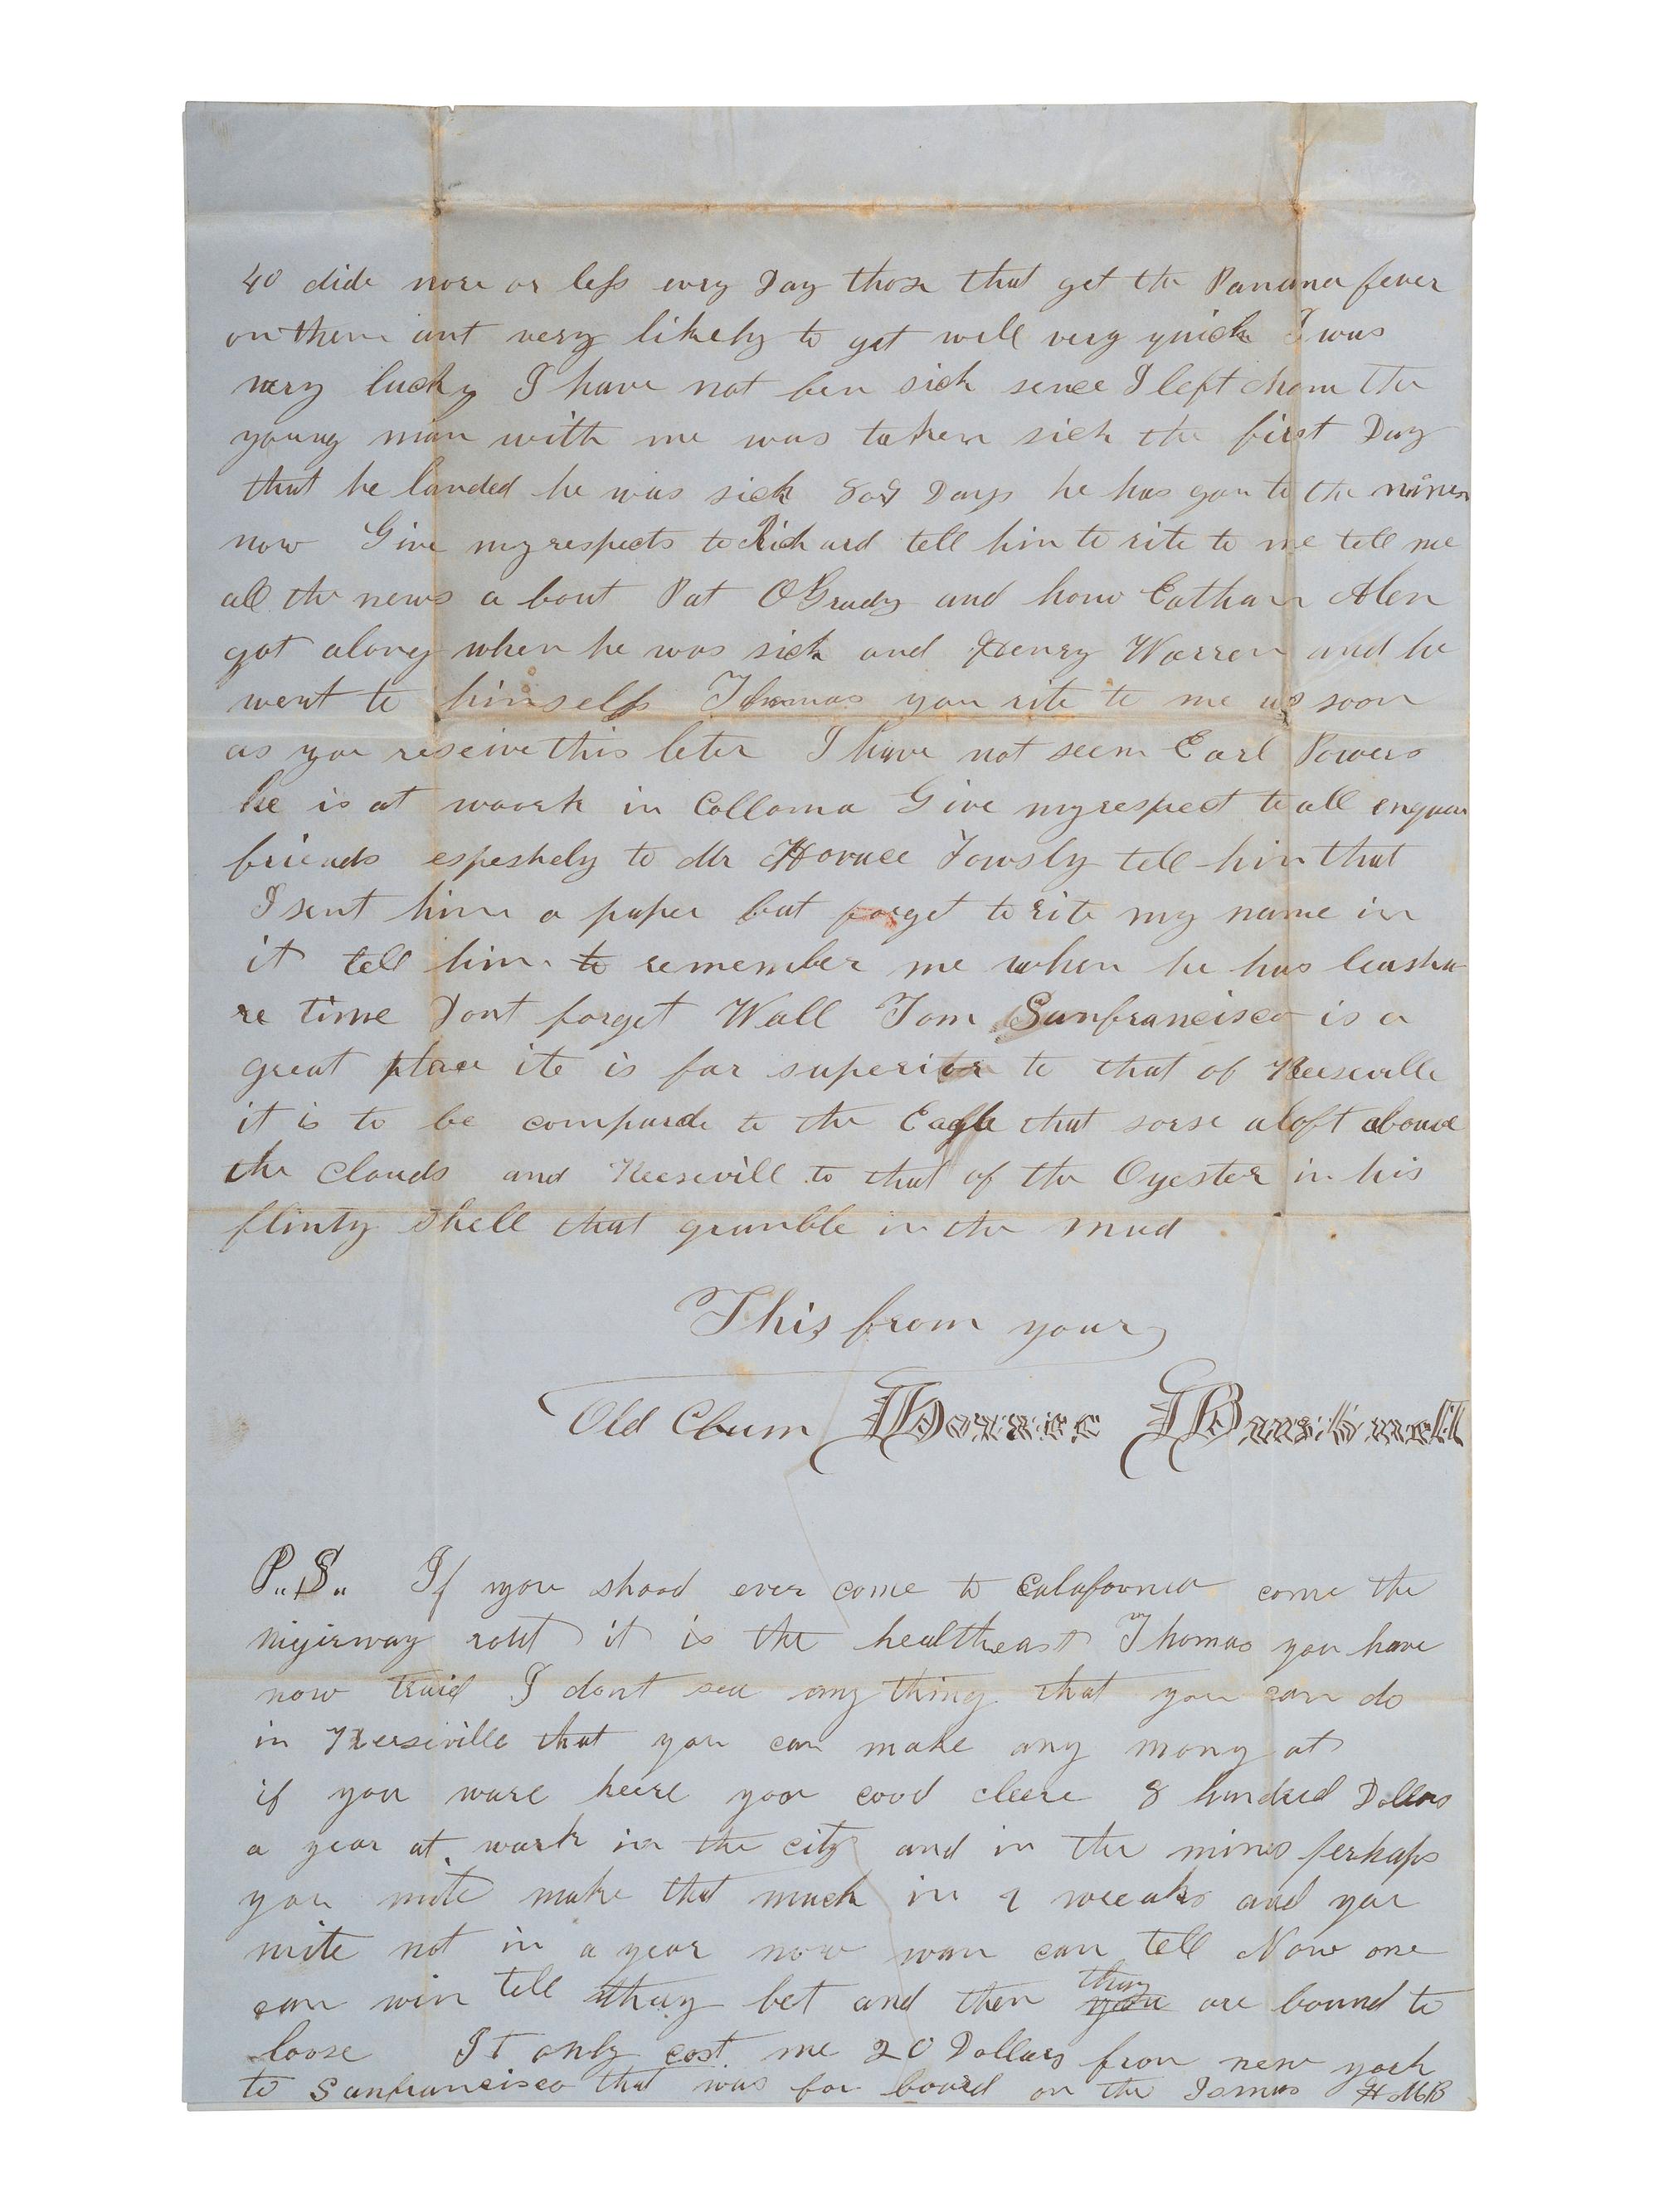 40 dide more or less evry Day those that get the Panama fever
on them ant very likely to get well very quick I was
very lucky I have not ben sick sence I left home the
young man with me was taken sick the first Day
that he landed he was sick 8 or 9 Days he has gon to the mines
now Give my respects to Richard tell him to rite to me tell me
all the news a bout Pat OGrady and how Eathan Alen
got along when he was sick and Henry Warren and he
went to himself Thomas you rite to me as soon
as you reseive this leter I have not seem Earl Powers
he is at woork in Colloma Give my respect to all enquir
friends espeshely to Mr Horace Towsly tell him that
I sent him a paper but forget to rite my name in
it tell him to remember me when he has leasha
re time Dont forget Wall Tom Sanfrancisco is a
great place ite is far superior to that of Keeseville
it is to be comparde to the Eagle that sorse aloft aboave
the clouds and Keesevill to that of the Oyester in his
flinty Shell that grumble in the mud
This from your
Old Chum Horace
P.S. If you shood ever come to Calafornia come the
rout it is the healtheast Thomas you have
now traid I dont see any thing that you can do
in Keesiville that you can make any mony at
if you ware heere you cood cleere 8 hundred Dollars
a year at wark in the city and in the mines perhaps
you mite make that much in 2 weeaks and you
mite not in a year now wan can tell Now one
can win tell thay bet and then thay are bound to
loose It only cost me 20 Dollars fron new york
to Sanfrancisco that was for board on the Ismus HMB